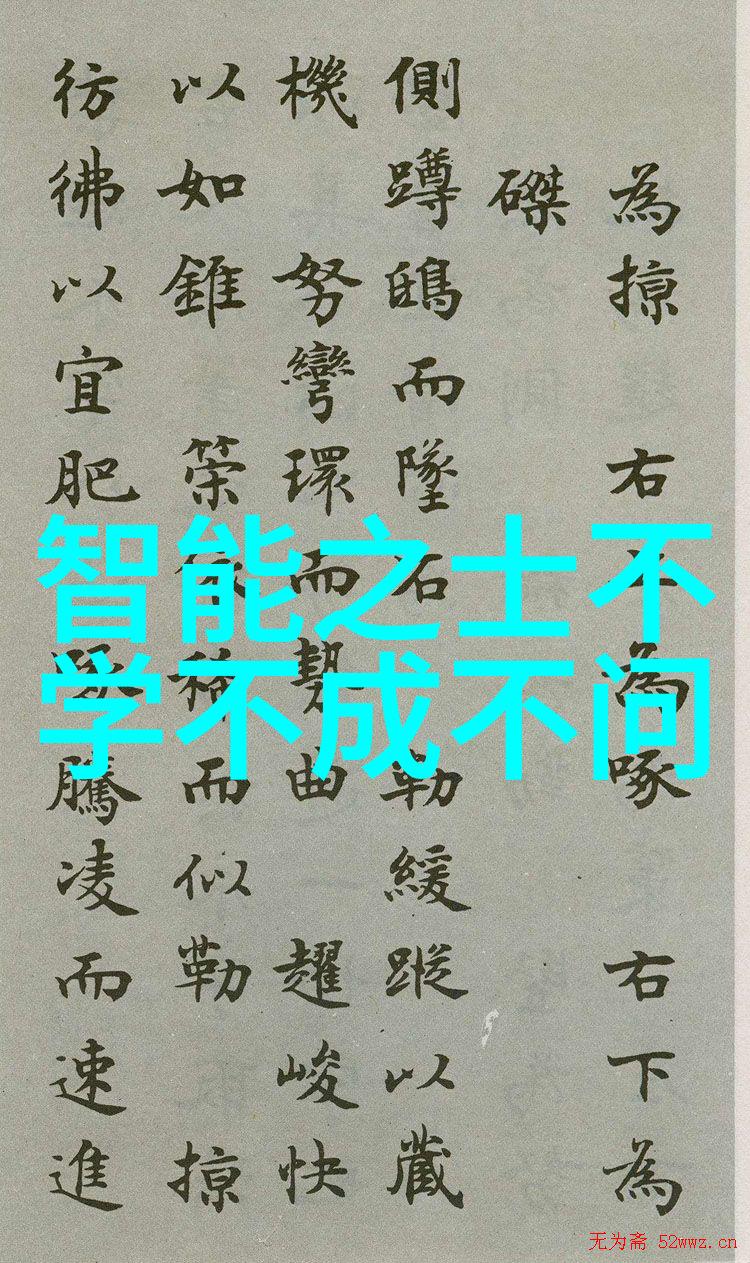 為掠 右上為啄 右下為
磔
側蹲鴟而墜石 勒緩蹤以藏
機 努彎環而勢曲 趯峻快
以如錐 策依稀而似勒 掠
彷彿以宜肥 啄騰凌而速進
智能之士不
学不成不问
无为斋 52wwz.cn